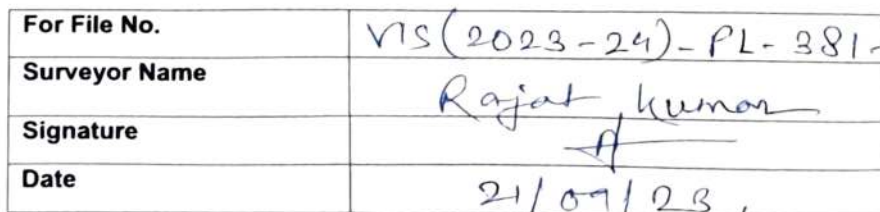 For File No. VIS(2023-24)-PL-381-
Surveyor Name Rajat Kumar
Signature
Date 21/09/23